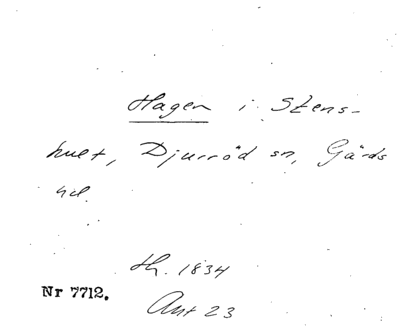 Hagen i Stens-
hult, Djurröd sn, Gärds
hd.
th. 1834
Nr 7712.
Ant 23